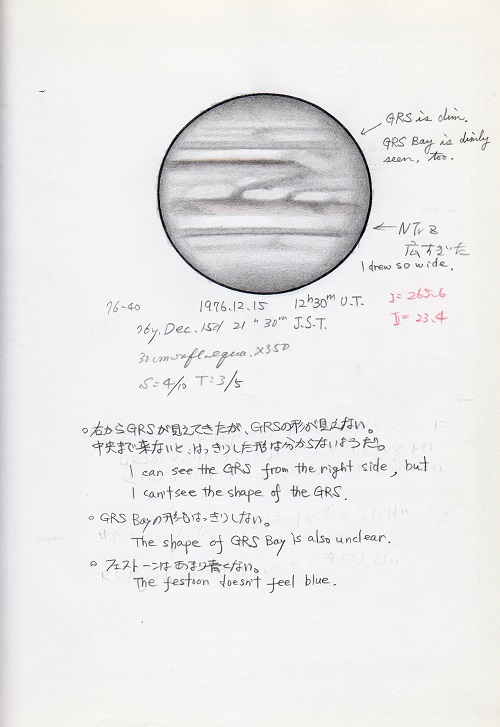 GRS is dim.
GRS Bay is dimly
seen, too.
NTrZ
広すぎた
I drew so wide.
76-40 1976.12.15 12h30m U.T.
76y. Dec. 15d 21h30m J.S.T.
I= 265.6
II= 23.4
30cm refl. equa. x350
S=4/10 T=3/5
○右からGRSが見えてきたが、GRSの形が見えない。
中央まで来ないと、はっきりした形は分からないようだ。
I can see the GRS from the right side, but
I can't see the shape of the GRS.
○GRS Bayの形もはっきりしない。
The shape of GRS Bay is also unclear.
○フェストーンはあまり青くない。
The festoon doesn't feel blue.